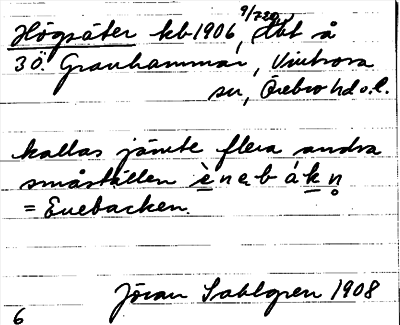 Högsäter kb 1906, 9/220, Hbt å
3 Ö. Granhammar, Vintrosa
sn, Örebro hd o. l.
kallas jämte flera andra
småställen è n e b á k n̥
= Enebacken.
Jöran Sahlgren 1908
6